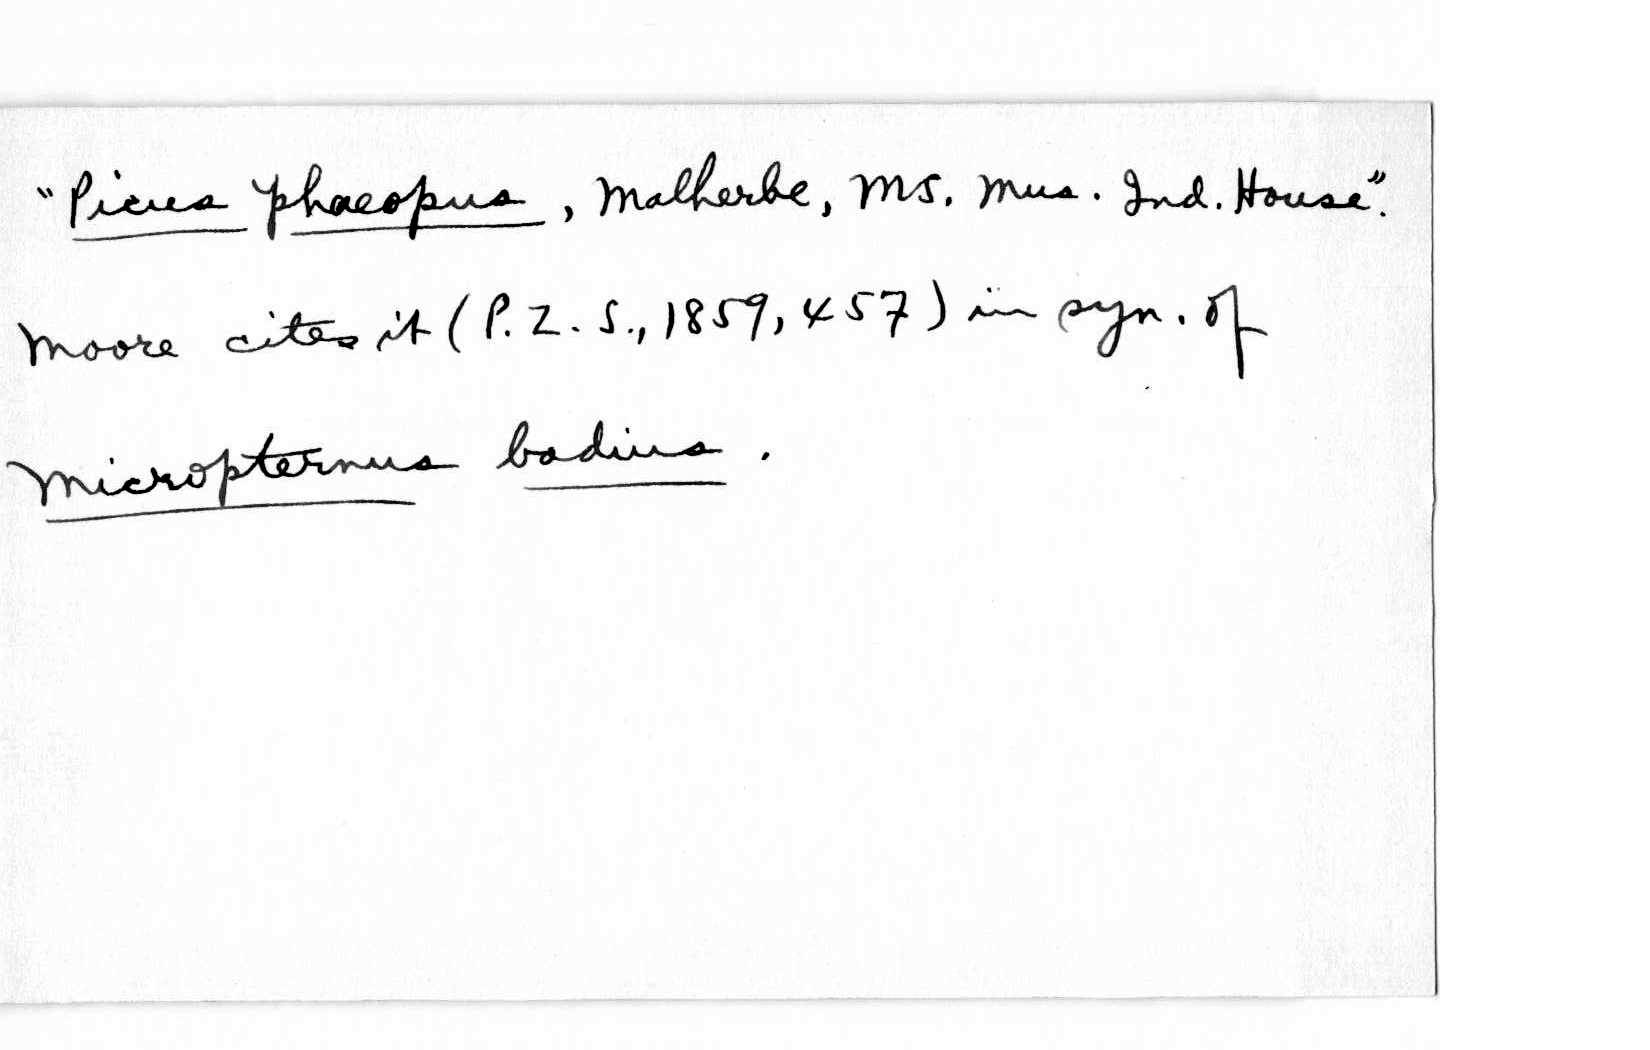 "Picus phaeopus, Malherbe, MS. Mus. Ind. House".
Moore cites it (P.Z.S., 1859, 457) in syn. of
Micropternus badius.